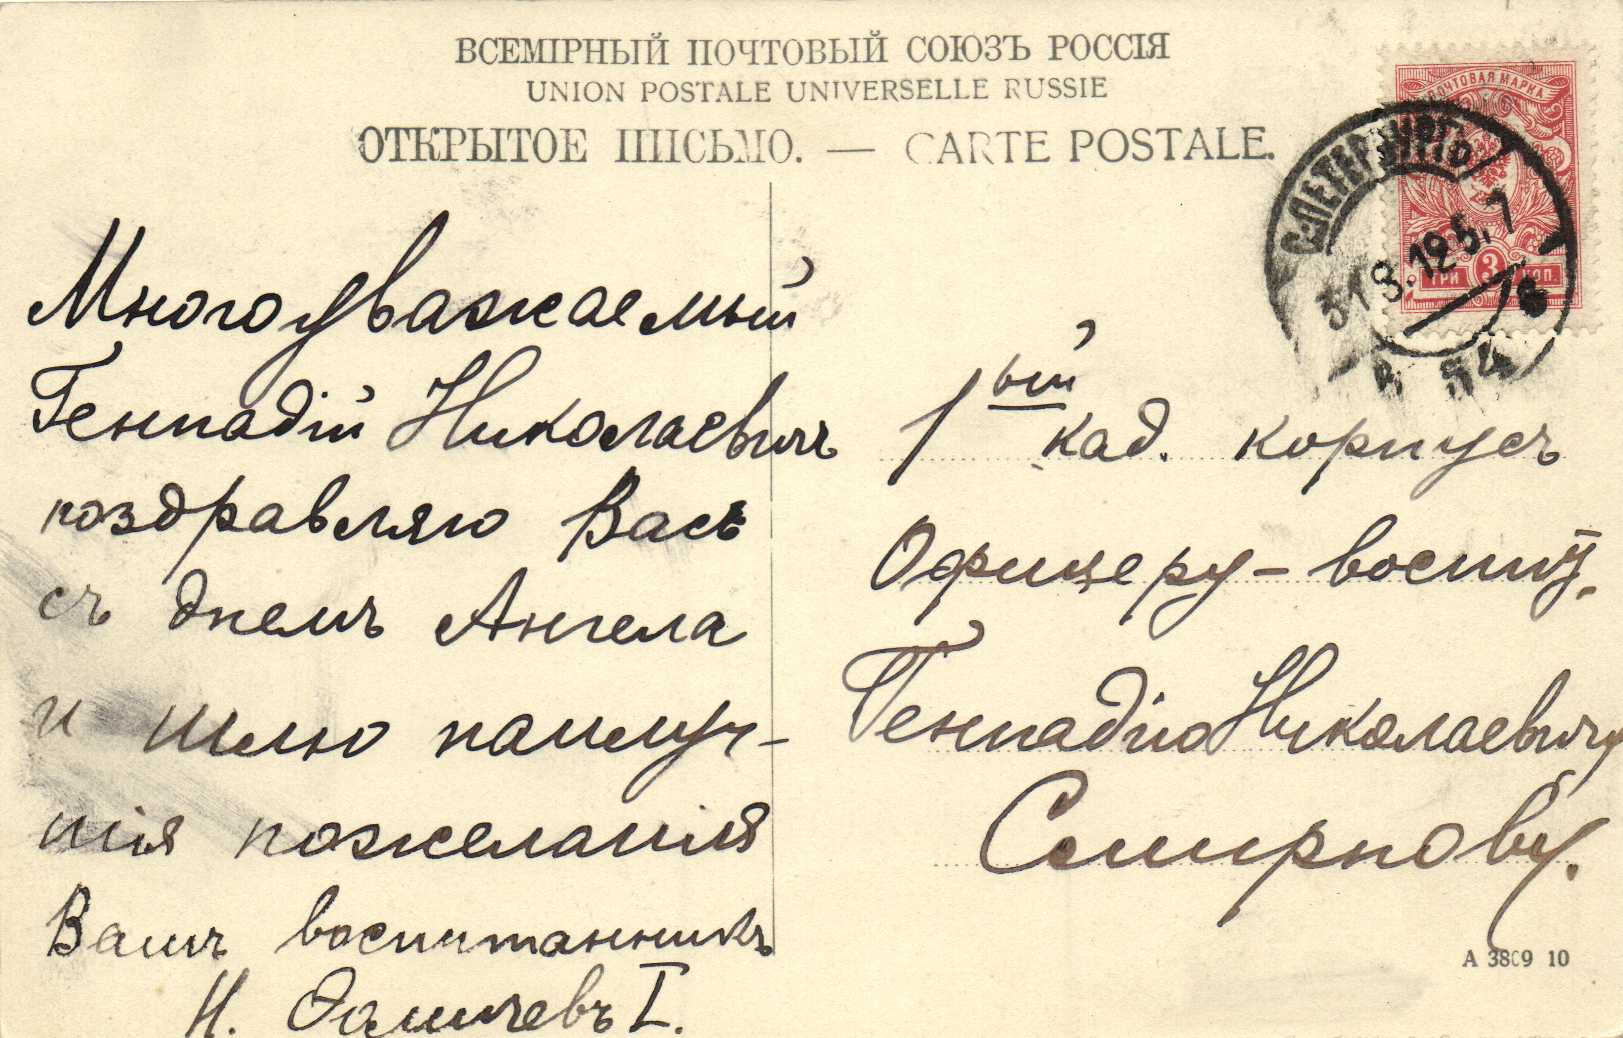 ВСЕМІРНЫЙ ПОЧТОВЫЙ СОЮЗЪ РОССІЯ
UNION POSTALE UNIVERSELLE RUSSIE
ОТКРЫТОЕ ПИСЬМО. — CARTE POSTALE.
ПОЧТОВАЯ МАРКА
3
ТРИ КОП.
С-ПЕТЕРБУРГЪ
Многоуважаемый
Геннадій Николаевичъ
поздравляю Васъ
съ днемъ Ангела
и шлю наилуч-
шія пожеланія
Вашъ воспитанникъ
Н. I.
1ый кад. корпусъ
Офицеру – воспит.
Геннадію Николаевичу
Смирнову.
А 3809 10